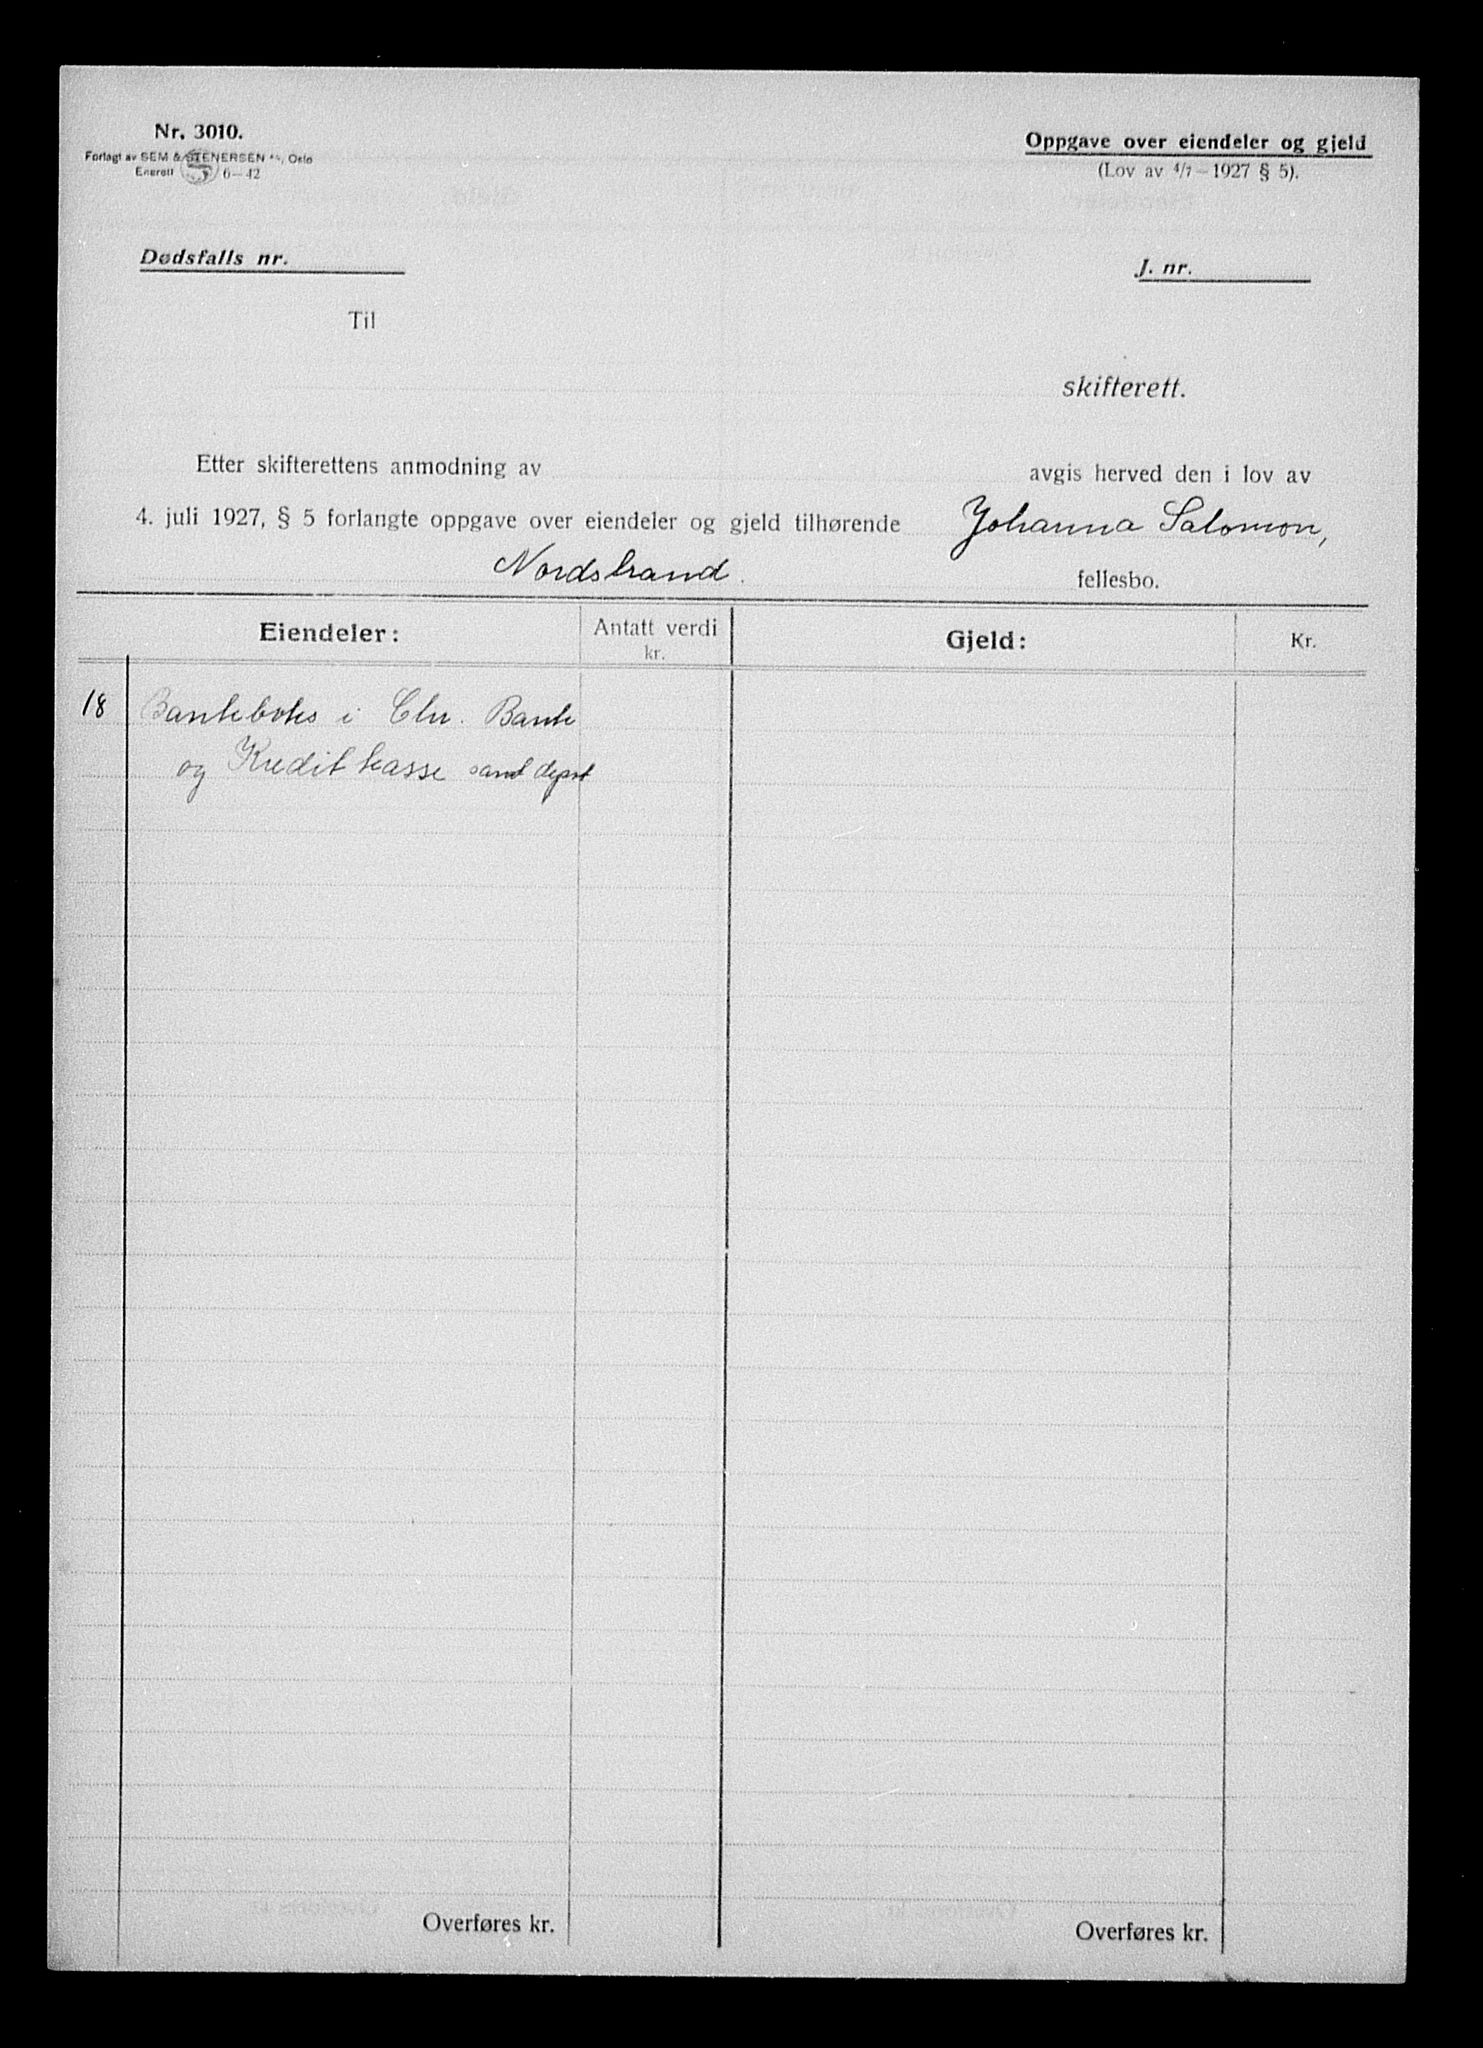 Nr. 3010.
Forlagt av SEM & STENERSEN A/S, Oslo
Enerett 6-42
Oppgave over eiendeler og gjeld
(Lov av 4/7 - 1927 § 5).
Dødsfalls nr.
J. nr.
Til
skifterett.
Etter skifterettens anmodning av avgis herved den i lov av
4. juli 1927, § 5 forlangte oppgave over eiendeler og gjeld tilhørende Johanna Salomon,
Nordstrand. fellesbo.
Eiendeler: Antatt verdi kr. Gjeld: Kr.
18 Bankboks i Chr. Bank
og Kreditkasse samt depot
Overføres kr. Overføres kr.